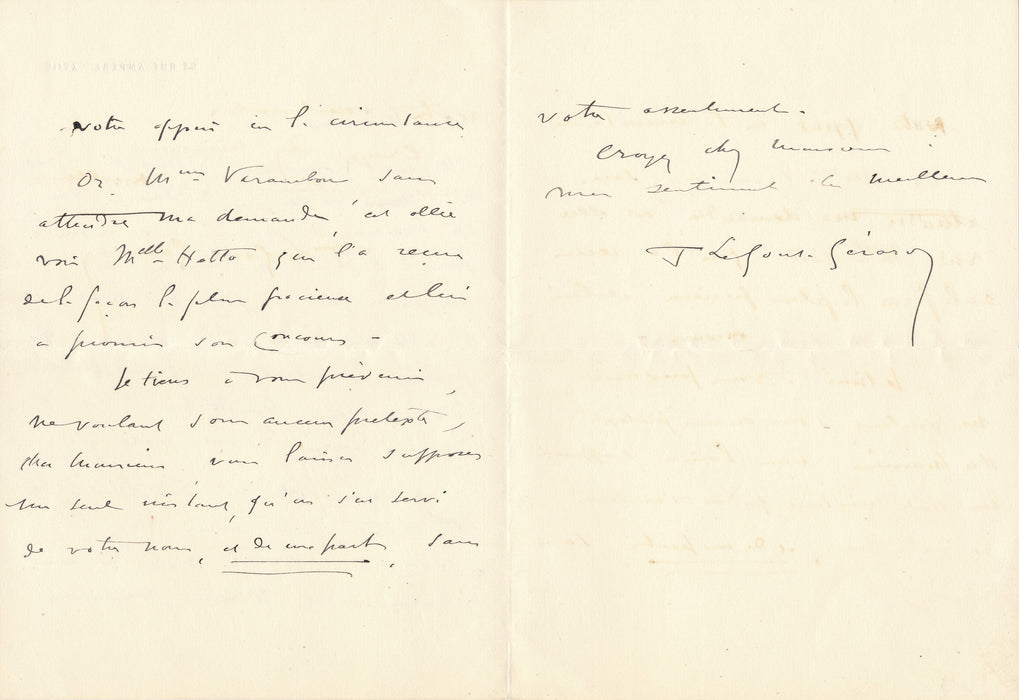 votre appui en la circonstance
Or Mme Varambon sans
attendre ma demande, est allée
voir Melle Hatto qui l'a reçue
de la façon la plus gracieuse et lui
a promis son concours -
Je tiens à vous prévenir,
ne voulant sous aucun prétexte,
cher Monsieur vous laisser supposer
un seul instant, qu'on s'est servi
de votre nom, et de ma part, sans
votre assentiment.
Croyez cher Monsieur à
mes sentiments les meilleurs
F Le Gout-Gérard